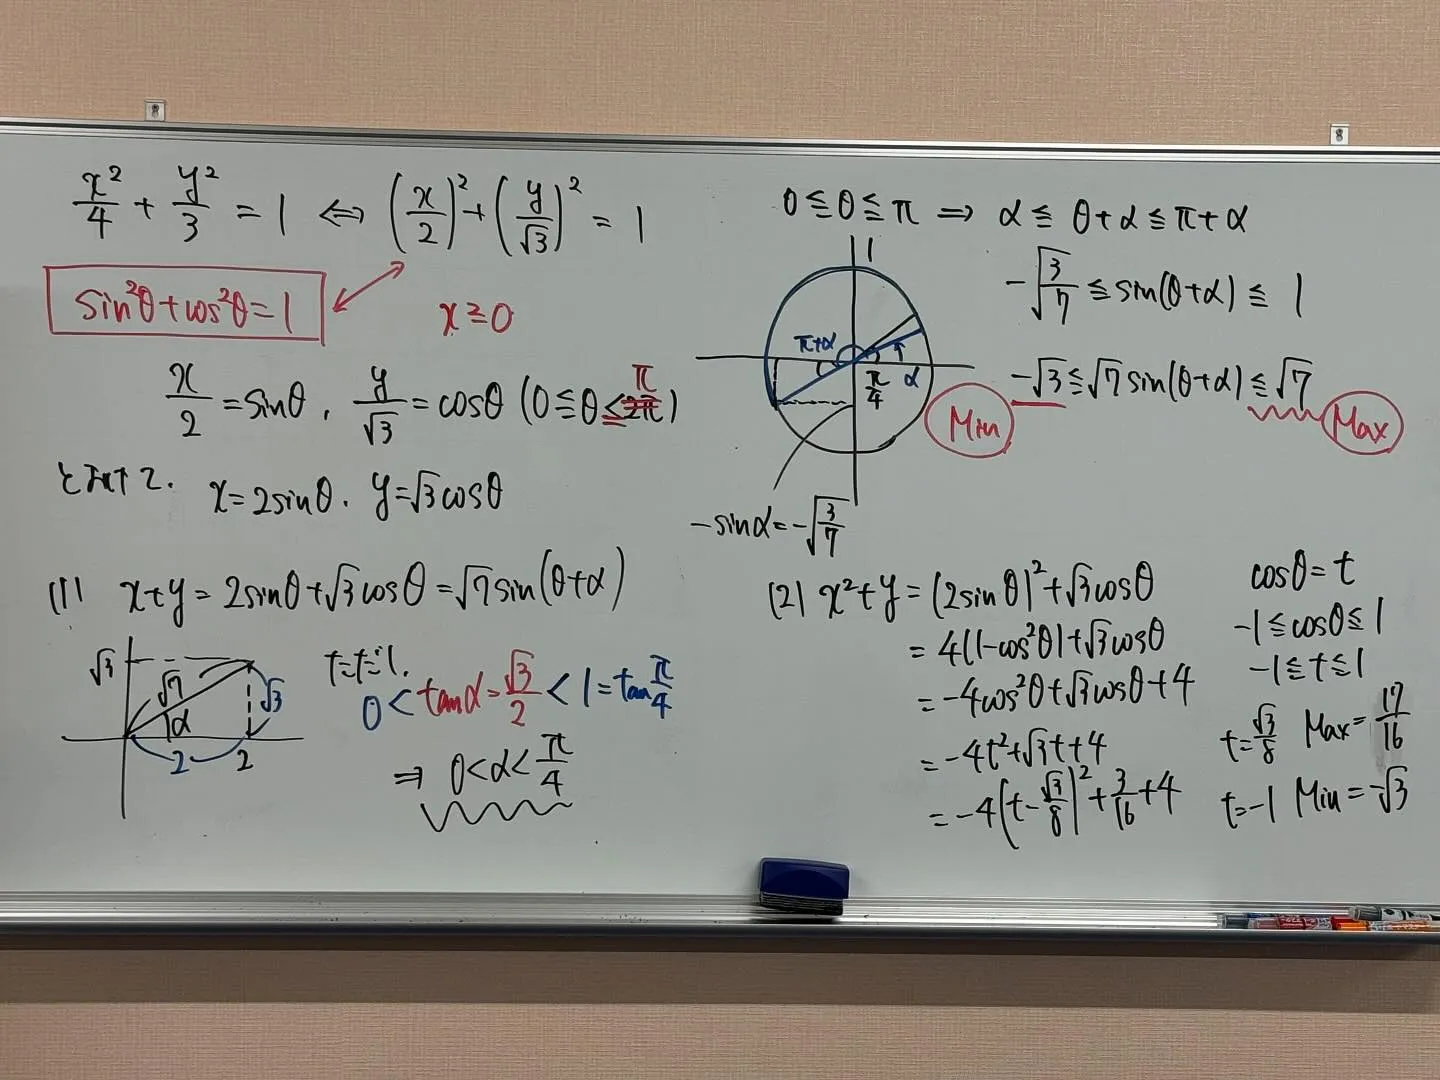 x²/4 + y²/3 = 1 ⇔ (x/2)² + (y/√3)² = 1
sin²θ + cos²θ = 1
x ≧ 0
x/2 = sinθ, y/√3 = cosθ (0 ≦ θ ≤ 2π π)
とおけて. x = 2sinθ, y = √3cosθ
(1) x+y = 2sinθ + √3cosθ = √7sin(θ+α)
√3 √7 α √3 2 2
ただし.
0 < tanα = √3/2 < 1 = tan π/4
⇒ 0 < α < π/4
0 ≦ θ ≦ π ⇒ α ≦ θ+α ≦ π+α
1
-√(3/7) ≦ sin(θ+α) ≦ 1
π+α π/4 α
-√3 ≦ √7sin(θ+α) ≦ √7
Min Max
-sinα = -√(3/7)
(2) x²+y = (2sinθ)² + √3cosθ
= 4(1-cos²θ) + √3cosθ
= -4cos²θ + √3cosθ + 4
= -4t² + √3t + 4
= -4(t - √3/8)² + 3/16 + 4
cosθ = t
-1 ≦ cosθ ≦ 1
-1 ≦ t ≦ 1
t = √3/8 Max = 17/16
t = -1 Min = -√3